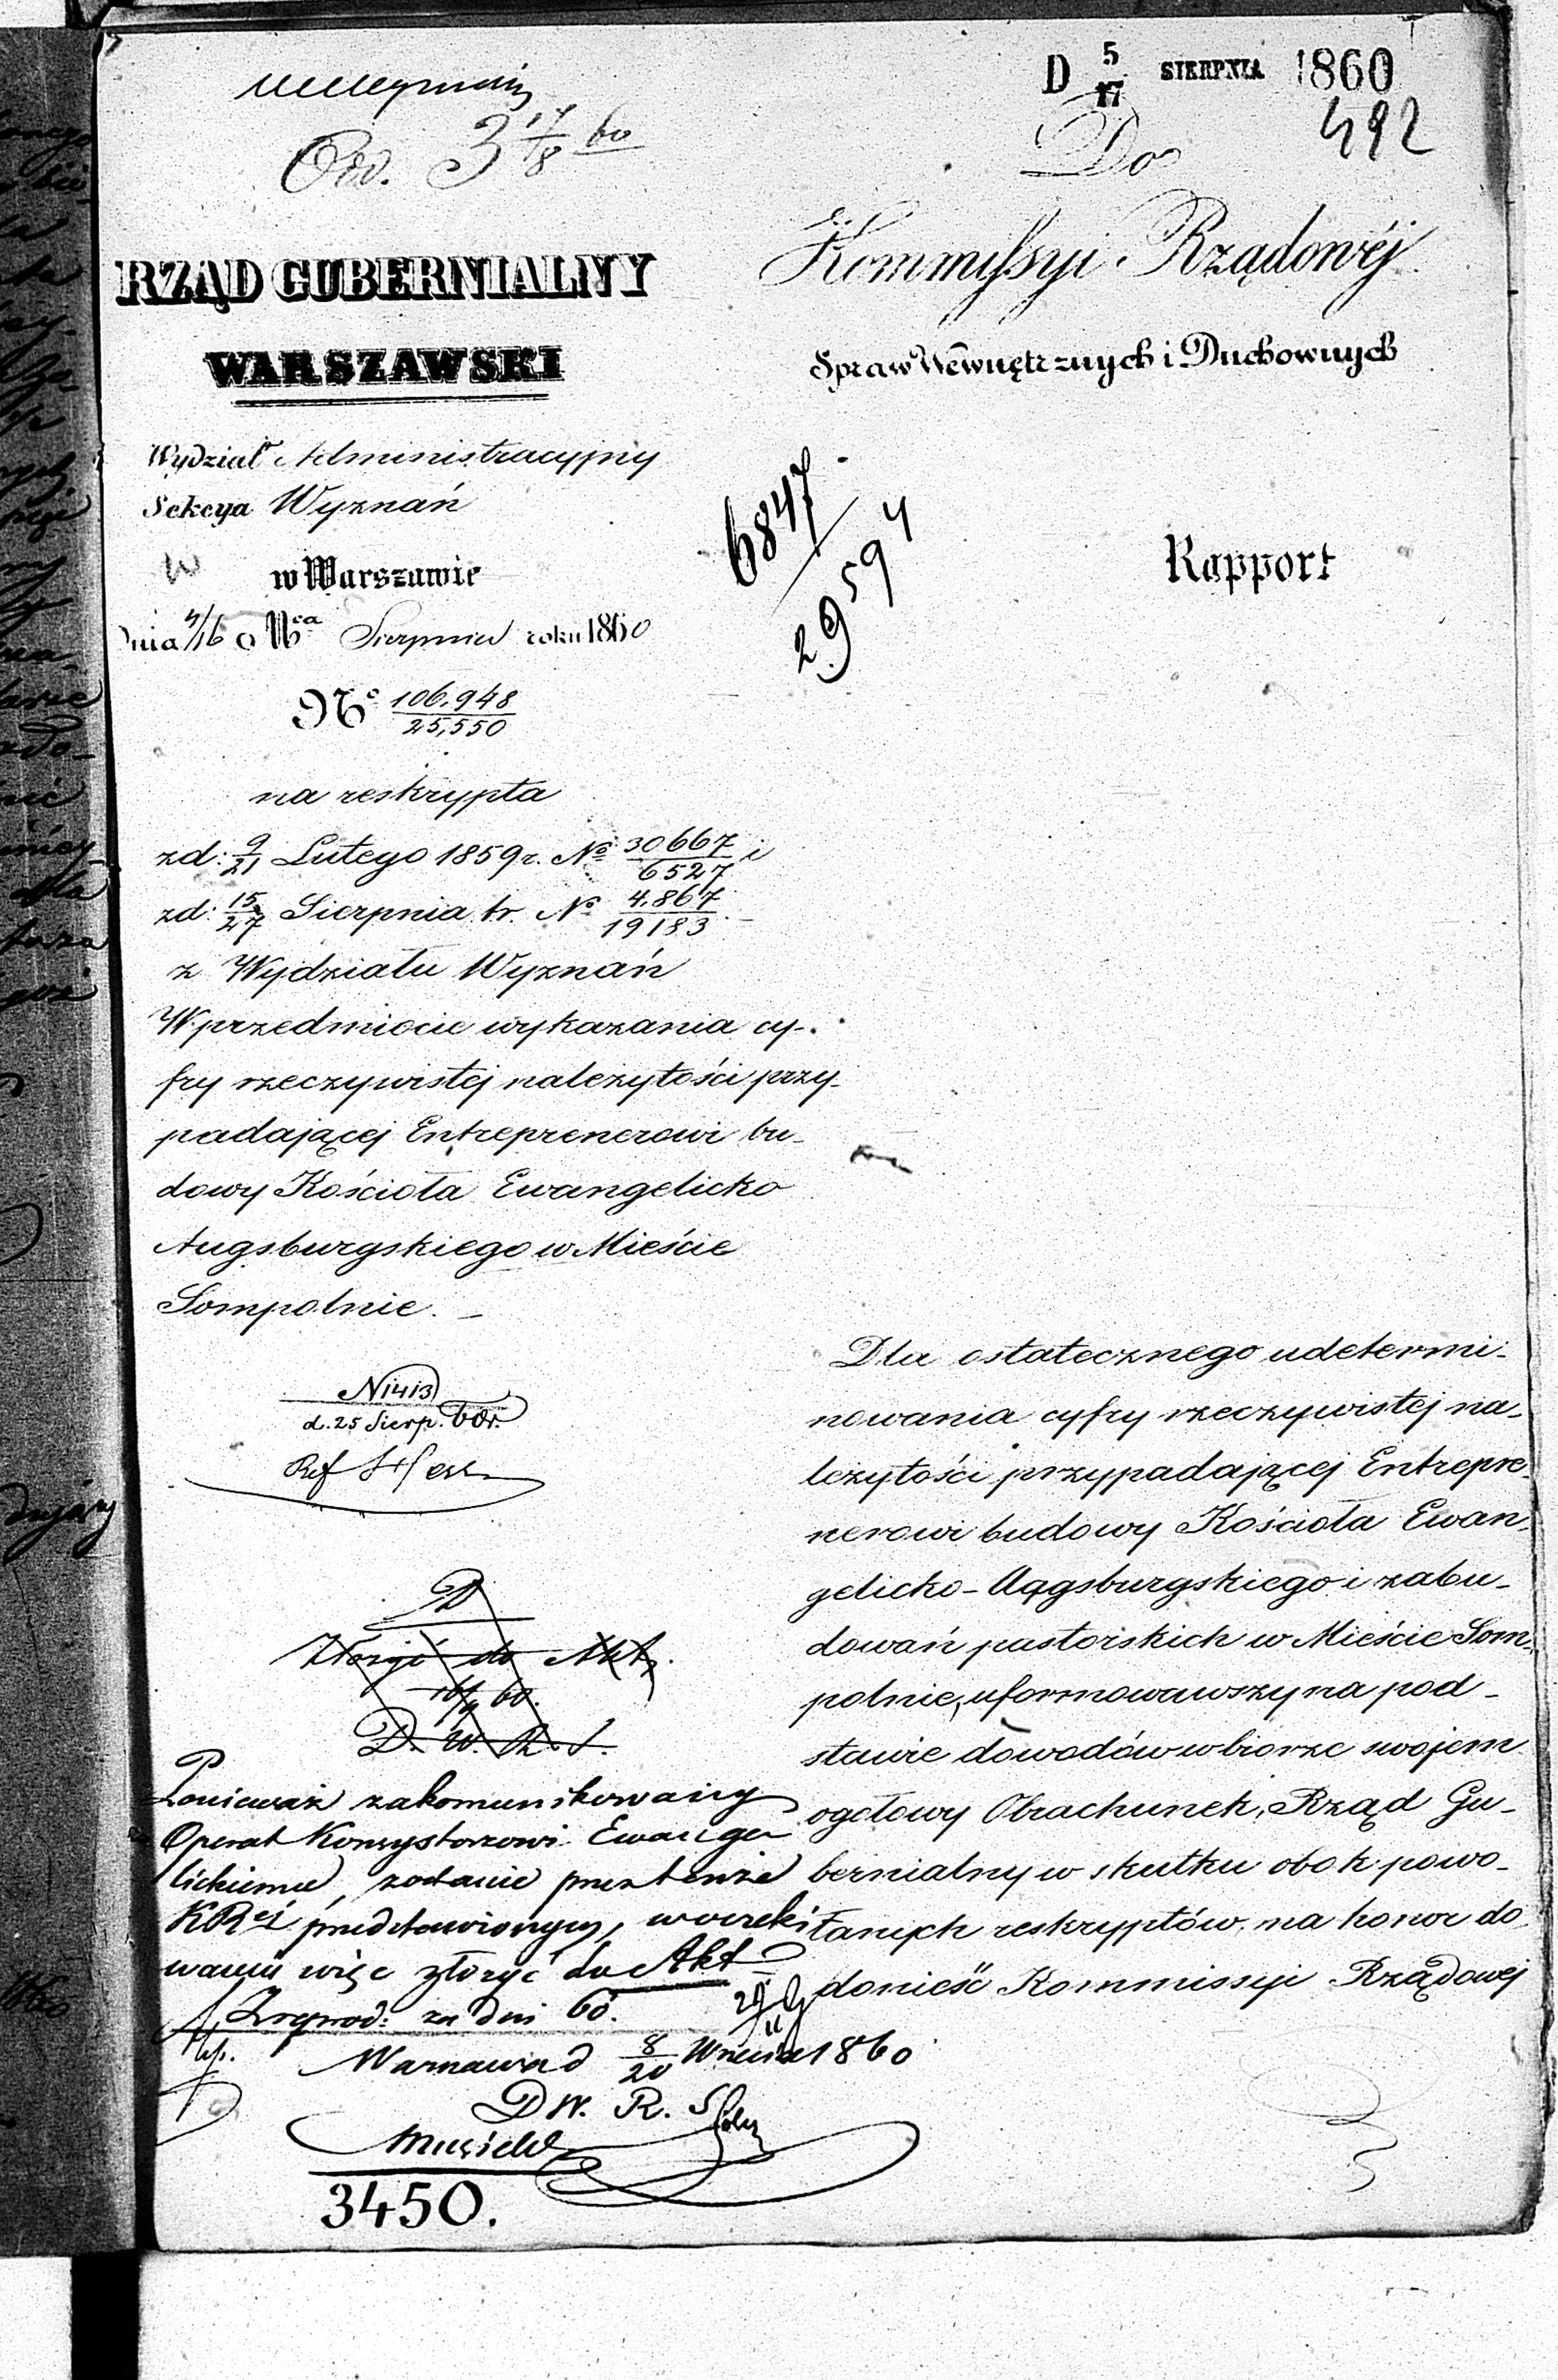 D 5/17 SIERPNIA 1860
492
Ord. 3 17/8 60
Do
Kommyssyi Rządowéj
Spraw Wewnętrznych i Duchownych
RZĄD GUBERNIALNY
WARSZAWSKI
Wydział Administracyjny
Sekcya Wyznań
w Warszawie
dnia 4/16 o Mca Sierpnia roku 1860
No 106,948/25,550
6847/29594
Rapport
na reskrypta
zd: 9/21 Lutego 1859 r. No 30667/6527 i
zd: 15/27 Sierpnia tr. No 4,867/19183
z Wydziału Wyznań
W przedmiocie wykazania cy-
fry rzeczywistej należytości przy-
padającej Entreprenerowi bu-
dowy Kościoła Ewangelicko
Augsburgskiego w Mieście
Sompolnie. –
N 1413
d. 25 Sierp. 60 r.
Ref
Złożyć do Akt
60.
D. W. R. S.
Ponieważ zakomunikowany
Operat Konsystorzowi Ewange
lickiemu, zostanie przez tenże
KRej przedstawionym, w oczeki
waniu więc złożyć do Akt
za dni 60.
Warszawa d 8/20 Wrześn 1860
D W. R. S
3450.
Dla ostatecznego udetermi-
nowania cyfry rzeczywistej na-
leżytości przypadającej Entrepre-
nerowi budowy Kościoła Ewan-
gelicko-Augsburgskiego i zabu-
dowań pastorskich w Mieście Som-
polnie, uformowawszy na pod-
stawie dowodów w biorze swojem
ogółowy Obrachunek, Rząd Gu-
bernialny w skutku obok powo-
łanych reskryptów, ma honor do
donieść Kommissyi Rządowej